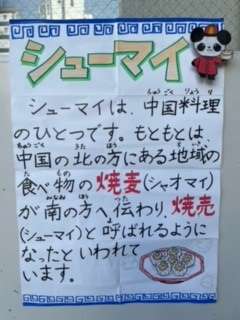 シューマイ
シューマイは、中国料理
のひとつです。もともとは
中国の北の方にある地域の
食べ物の焼麦(シャオマイ)
が南の方へ伝わり、焼売
(シューマイ)と呼ばれるように
なったといわれて
います。